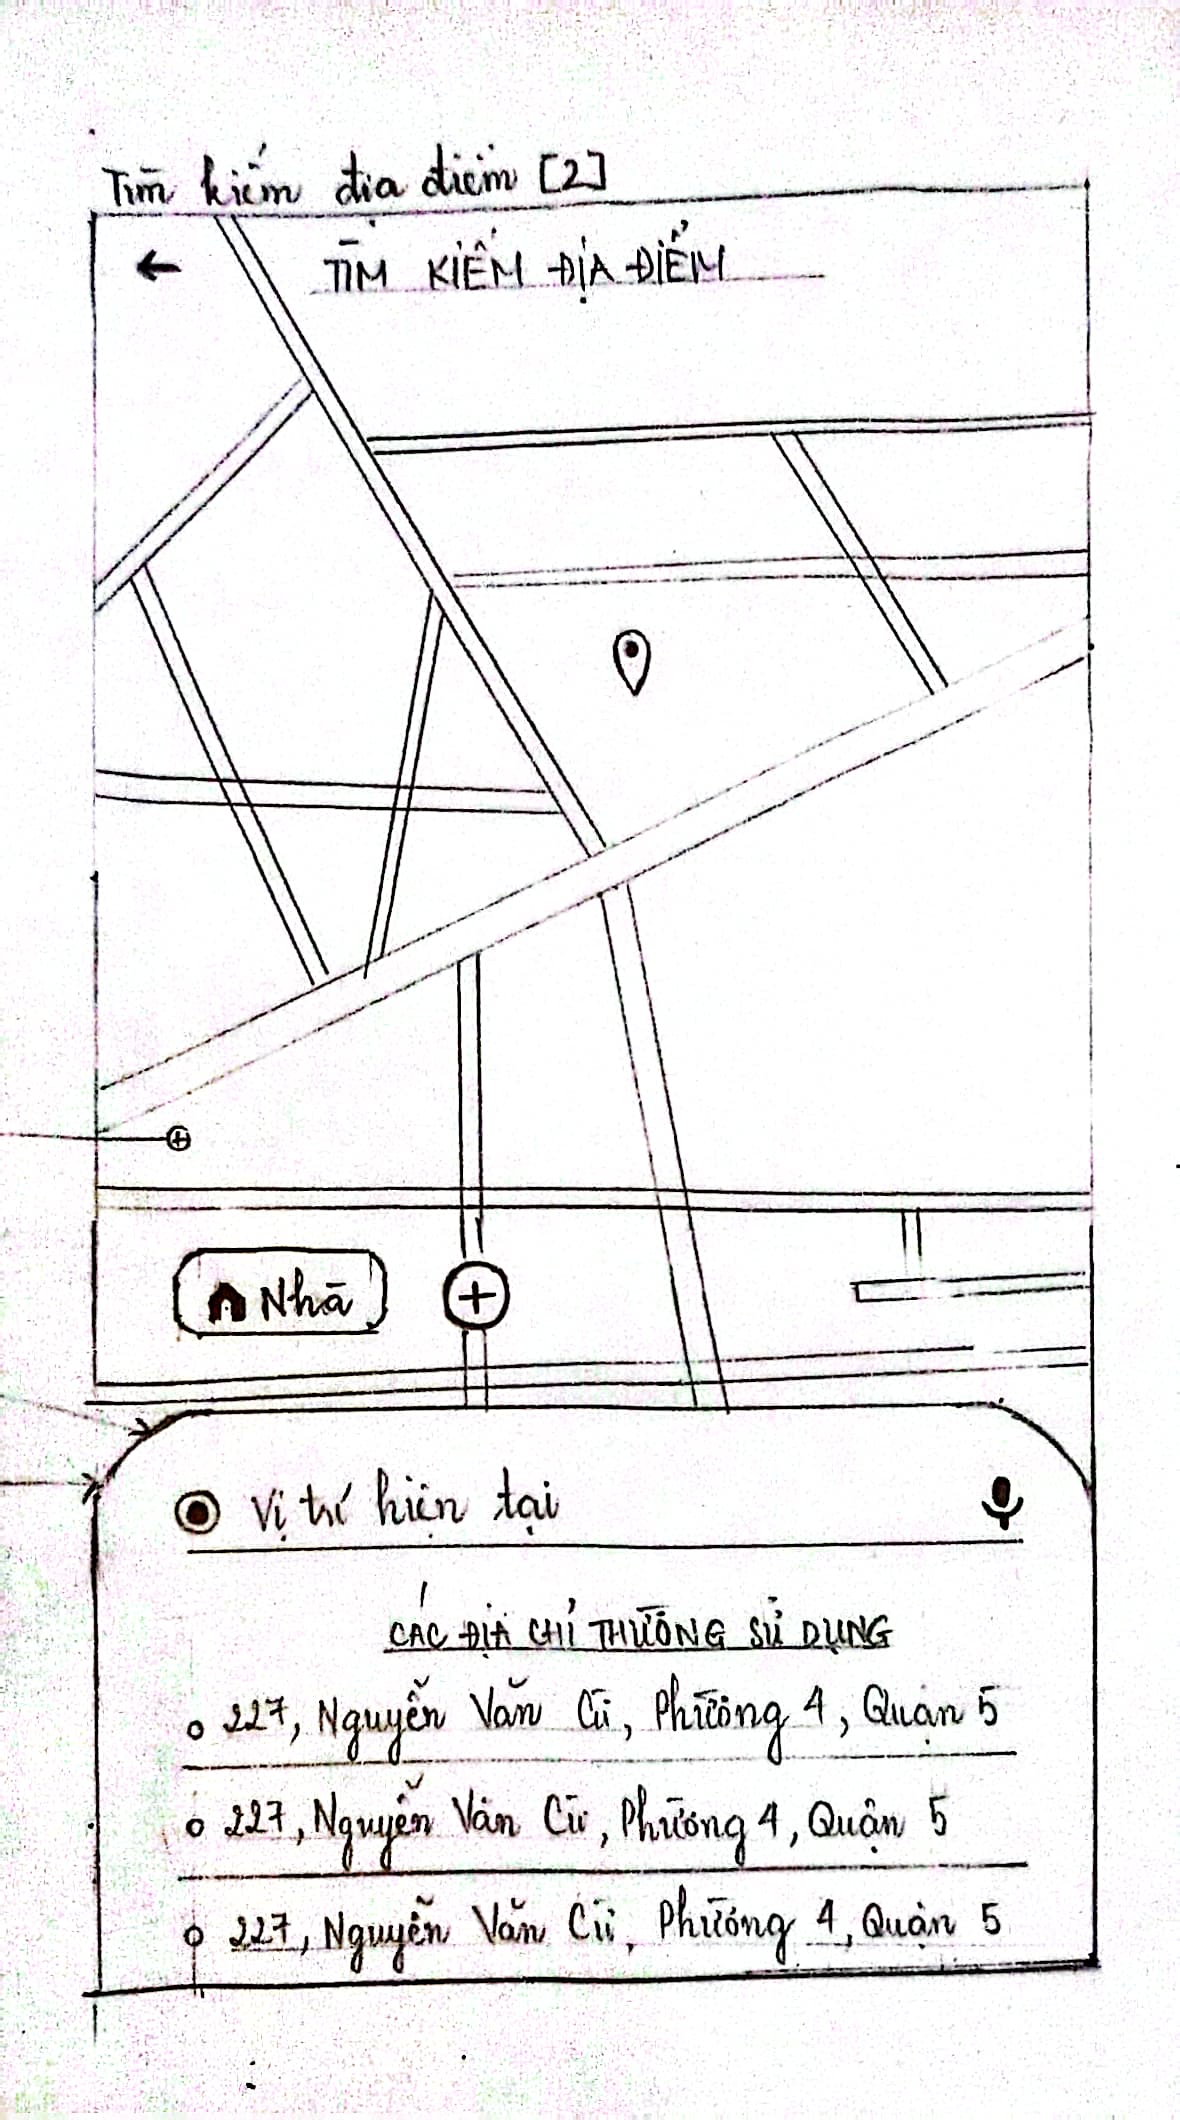 Tìm kiếm địa điểm [2]
TÌM KIẾM ĐỊA ĐIỂM
Nhà
Vị trí hiện tại
CÁC ĐỊA CHỈ THƯỜNG SỬ DỤNG
227, Nguyễn Văn Cừ, Phường 4, Quận 5
227, Nguyễn Văn Cừ, Phường 4, Quận 5
227, Nguyễn Văn Cừ, Phường 4, Quận 5